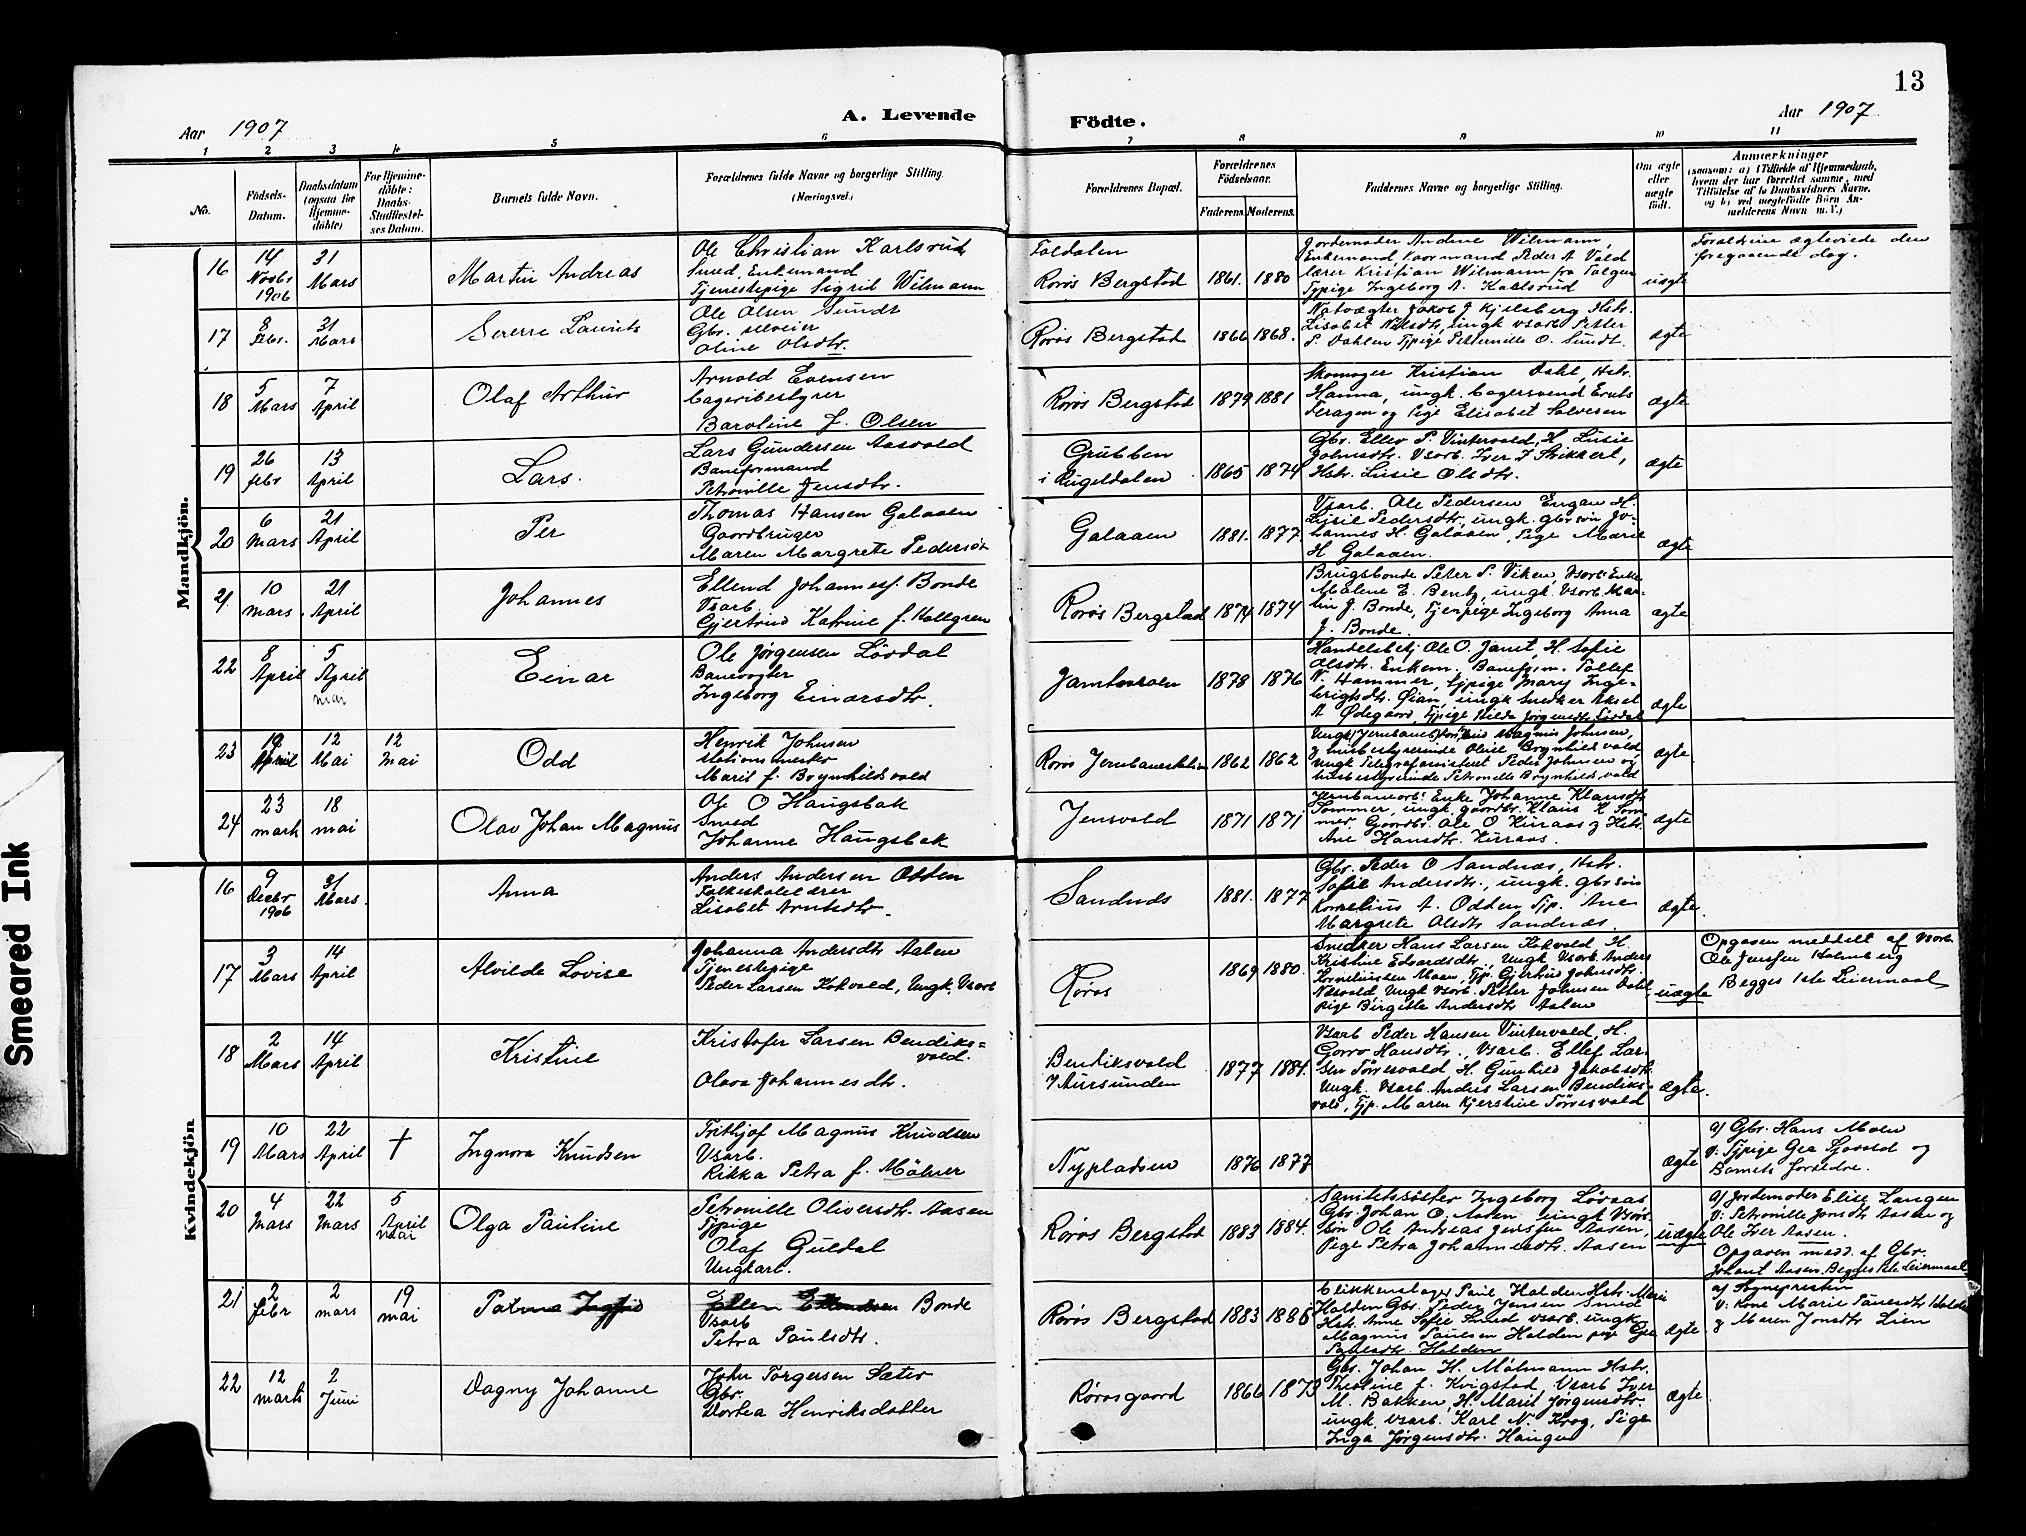 13
Aar 1907
A. Levende
Födte.
Aar 1907
1 2 3 4 5 6 7 8 9 10 11
No.
Födsels-
Datum.
Daabsdatum
(ogsaa for
Hjemme-
döbte)
For Hjemme-
döbte:
Daabs-
Stadfæstel-
ses Datum.
Barnets fulde Navn.
Forældrenes fulde Navne og borgerlige Stilling.
(Næringsvei.)
Forældrenes Bopæl.
Forældrenes
Födselsaar.
Faderens.
Moderens.
Faddernes Navne og borgerlige Stilling.
Om ægte
eller
uægte
födt.
Anmærkninger
(saasom: a) i Tilfælde af Hjemmedaab,
hvem der har forrettet samme, med
Tilföielse af to Daabsvidners Navne,
og b) ved uægtefödte Börn An-
melderens Navn m. V.)
Mandkjön.
16
14
Novbr
1906
31
Mars
Martin Andreas
Ole Christian Karlsrud
Smed, Enkemand
Tjenestepige Sigrid Wilmann
Røros Bergstad
1861. 1880
Jordemoder Andrine Wilmann,
Enkemand, Peder A Vold
lærer Kristian Wilmann fra Tolgen
Tjpige Ingeborg A. Karlsrud
uægte
Forældrene ægteviede den
foregaaende dag.
17
8
Febr.
31
Mars
Sverre Laurits
Ole Olsen Sundt
Gbr.
Oline Olsdtr.
Røros Bergstad
1866 1868.
Jakob J Kjelsberg Hstr.
Lisabet Nilsdtr, ungk vsarb Petter
P. Dahlen Tjpige Petternille O. Sundt.
ægte
18
5
Mars
7
April
Olaf Arthur
Arnold Evensen
bageribestyrer
Baroline J. Olsen
Røros Bergstad
1879 1881
Skomager Kristian Dahl, Hstr.
Hanna, ungk. bagersvend
Feragen og Pige Elisabet Salvesen
ægte
19
26
febr
13
April
Lars.
Lars Gundersen Aasvold
Baneformand
Petronille Jensdtr.
Grubben
i Rugeldalen
1865 1874
Gbr. Ellev P. Vintervold, H. Lusie
Vsarb. Iver J
Hstr. Lusie Olsdtr.
ægte
20
6
Mars
21
April
Per
Thomas Hansen Galaaen
Gaardbruger
Maren Margrete Pedersdtr
Galaaen
1881. 1877
Vsarb. Ole Pedersen Engan H.
Lusie Pedersdtr, ungk. gbrsøn Jo-
hannes H. Galaaen, Pige Marie
H Galaaen.
ægte
21
10
Mars
21
April
Johannes
Ellend Johannesf. Bonde
Vsarb.
Gjertrud Katrine f. Kallgren
Røros Bergstad
1874 1874
Brugsbonde Peter P. Viken, Vsarb. Enke
Malene E. Bentz, ungk. Vsarb. Mar-
tin J. Bonde, Tjenpige Ingeborg Anna
J. Bonde.
ægte
22
8
April
5
April
mai
Einar
Ole Jørgensen Løvdal
Banevogter
Ingeborg Einarsdtr.
Jamtvolden
1878 1876
Handelsbetj. Ole O. Jamt, H. Sofie
Olsdtr. Enkem. Banefom. Tollef
N. Hammer, Tjpige Mary Inge-
brigtsdtr. Øian, ungk Snedker Aksel
A Ødegaard, Tjpige Hilda Jørgensdtr Løvdal
ægte
23
19
April
12
Mai
12
Mai
Odd
Henrik Johnsen
stationsmester
Marit f. Brynhildsvold
Røros Jernbanestation
1862 1862
Magnus Johnsen,
og husbestyrerinde Oline Brynhildsvold
ungk Telegrafassistent Peder Johnsen og
husbestyrerinde Petronelle Brynhildsvold
ægte
24
23
marts
18
mai
Olav Johan Magnus
Ole O Haugsbak
Smed
Johanne Haugsbak
Jensvold
1871 1871
Jernbanearb. Enke Johanne Klausdtr
Sommer, ungk. gaardbr. Klaus K Som-
mer, Gaardbr. Ole O Kuraas og Hstr.
Ane Hansdtr. Kuraas.
ægte
Kvindekjön
16
9
Decbr
1906
31
Mars.
Anna
Anders Andersen Odden
Folkeskolelærer
Lisabet Arntsdtr.
Sandnæs
1881. 1877
Gbr. Peder O Sandnæs, Hstr.
Sofie Andersdtr., ungk. gbrsøn
Kornelius A. Odden Tjp. Ane
Margrete Olsdtr Sandnæs.
ægte.
17
3
Mars
14
April
Alvilde Lovise
Johanna Andersdtr Aalen
Tjenestepige
Peder Larsen Kokvold, Ungk. Vsarb
Røros
1869 1880.
Snedker Hans Larsen Kokvold H.
Kristine Edvardsdtr, Ungk Vsarb. Anders
Korneliussen Moen, Tjp. Gjertrud Johnsdtr.
Næsvold, Ungk vsarb. Petter Johnsen Dahl,
Pige Birgitte Andersdtr Aalen
uægte
Opgaven meddelt af Vsarb.
Ole Jensen Holmberg
Begges 1ste Leiermaal
18
2
Mars
14
April
Kristine
Kristofer Larsen Bendiks-
vold.
Olava Johannesdtr.
Bendiksvold
i Aursunden
1877 1884.
Vsarb Peder Hansen Vintervold, H.
Goro Hansdtr., Vsarb. Ellef Lar-
sen Tørresvold H. Gunhild Jakobsdtr,
Ungk. Vsarb. Anders Larsen Bendiks-
vold, Tjp. Maren Kjerstine Tørresvold
ægte.
19
10
Mars
22
April
†
Ingvora Knudsen
Frithjof Magnus Knudsen
Vsarb.
Rikka Petra f. Mölner
Nypladsen
1876 1877
ægte
a/ Gbr. Hans Moen
V: Tjpige Gea Sjøvold og
Barnets forældre.
20
4
Mars
22
Mars
5
April
mai
Olga Pauline
Petronille Oliversdtr. Aasen
Tjpige
Olaf Guldal
Ungkarl.
Røros Bergstad
1883 1884.
Sanitetssøster Ingeborg Løvaas
Gbr. Johan O. Aasen ungk Vsarb.
søn Ole Andreas Jensen Aasen,
Pige Petra Johannesdtr. Aasen
uægte
a/ Jordemoder Elise Langen
V: Petronille Jonsdtr Aasen og
Ole Iver Aasen.
Opgaven medd. af Gbr.
Johan Aasen. Begges 1ste Leiermaal
21
2
febr
2
mars
19
mai
Palma
Ellen Bonde
Vsarb
Petra Paulsdtr.
Røros Bergstad
1883 1886
Blikkenslager Paul Halden Hstr. Marie
Halden Gbr. Peder Jensen Smed
Hstr. Ane Sofie Smed vsarb. ungk
Magnus Paulsen Halden pige Gea
Paulsdtr. Halden
ægte
a/ Sognepresten
V: Kone Marie Paulsdtr Halden
og Maren Jonsdtr Lien
22
12
marts
2
Juni
Dagny Johanne
John Torgersen Sæter
Gbr.
Dortea Henriksdatter
Rørosgaard
1866 1873
Gbr. Johan H. Mølmann Hstr.
Theoline f. Kvigstad Vsarb Iver
M. Bakken, H. Marit Jørgensdtr.
ungk. vsarb. Karl N. Krog, Pige
Inga Jørgensdtr. Haugen
ægte
Smeared Ink